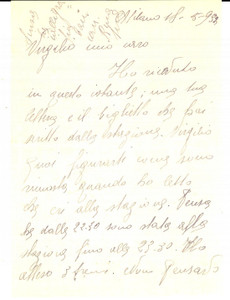 Milano 18-5-932
Virgilio mio caro
Ho ricevuto
in questo istante; una tua
lettera e il biglietto che hai
scritto dalla stazione. Virgilio
puoi figurarti come sono
rimasta quando ho letto
che eri alla stazione. Pensa
ha dalle 22.30 sono stata alla
stazione fino alle 23.30. Ho
atteso 3 treni. Avevo pensato